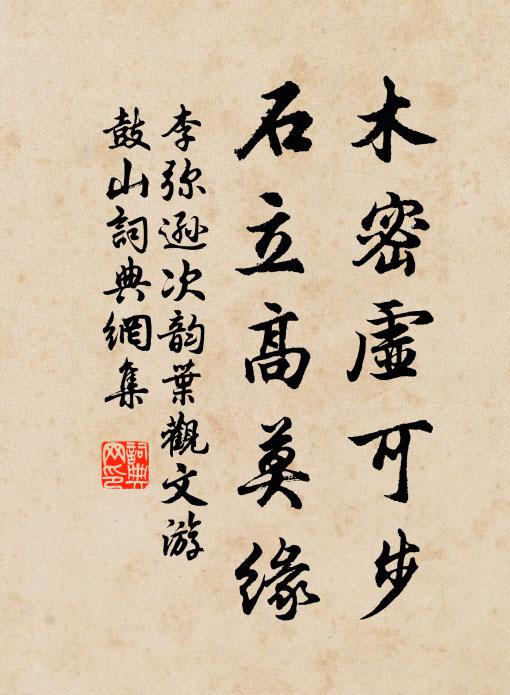 木密虛可步
石立高莫緣
李弥遜次韵葉觀文游
鼓山詞典網集
詞典网印